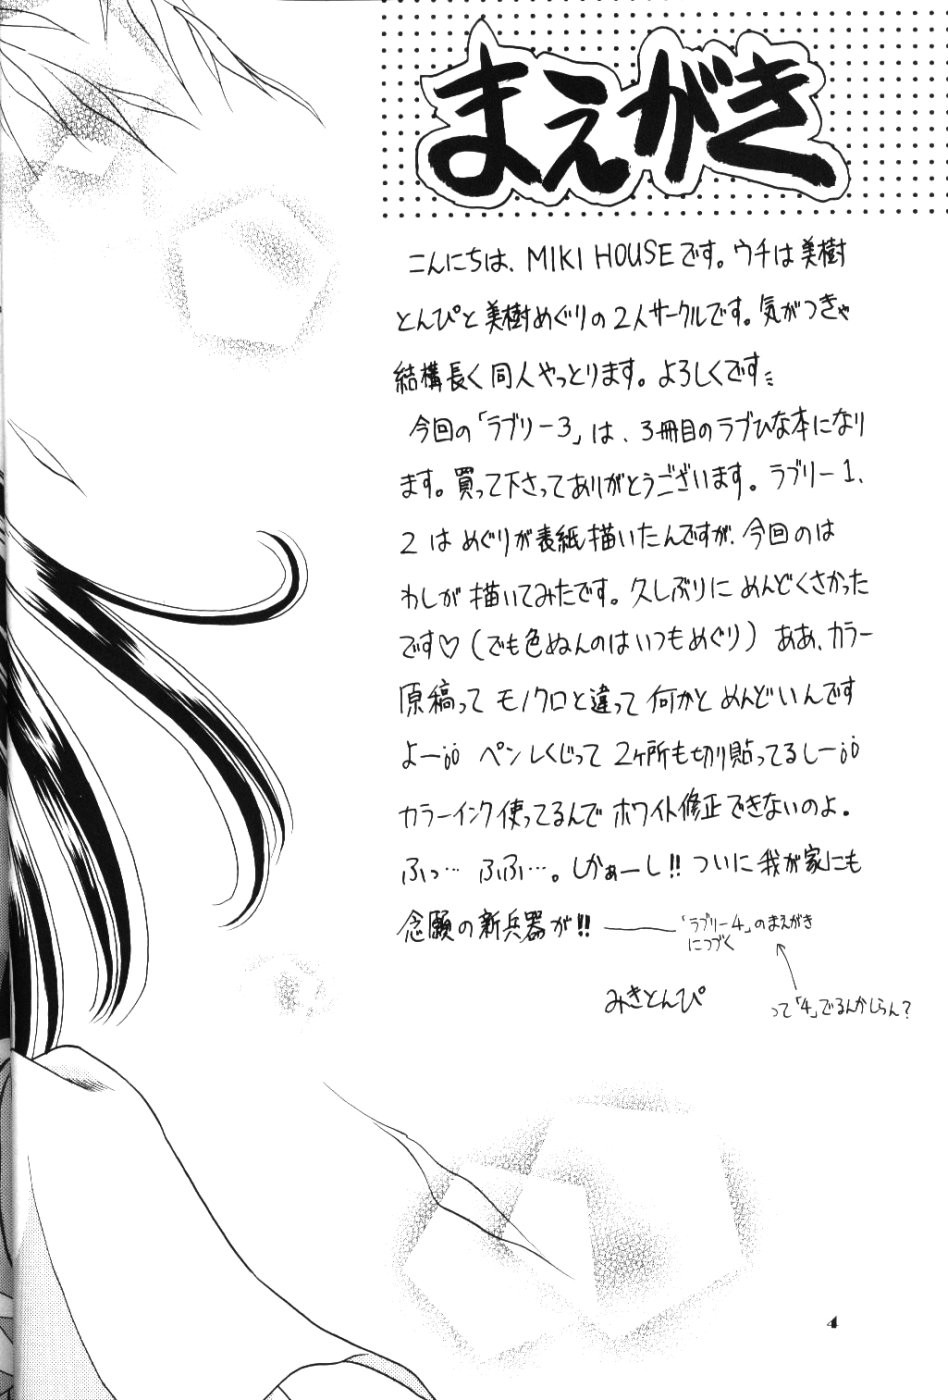 まえがき
こんにちは、MIKI HOUSEです。ウチは美樹
とんぴと美樹めぐりの2人サークルです。気がつきゃ
結構長く同人やっとります。よろしくです
今回の「ラブリー3」は、3冊目のラブひな本になり
ます。買って下さってありがとうございます。ラブリー1、
2はめぐりが表紙描いたんですが、今回のは
わしが描いてみたです。久しぶりにめんどくさかった
です♡(でも色ぬんのはいつもめぐり)ああ、カラー
原稿ってモノクロと違って何かとめんどいんです
よー。ペンしくじって2ヶ所も切り貼ってるしー。
カラーインク使ってるんでホワイト修正できないのよ。
ふっ…ふふ…。しかぁーし!!ついに我が家にも
念願の新兵器が!!――「ラブリー4」のまえがき
につづく
みきとんぴ
って「4」でるんかしらん?
4